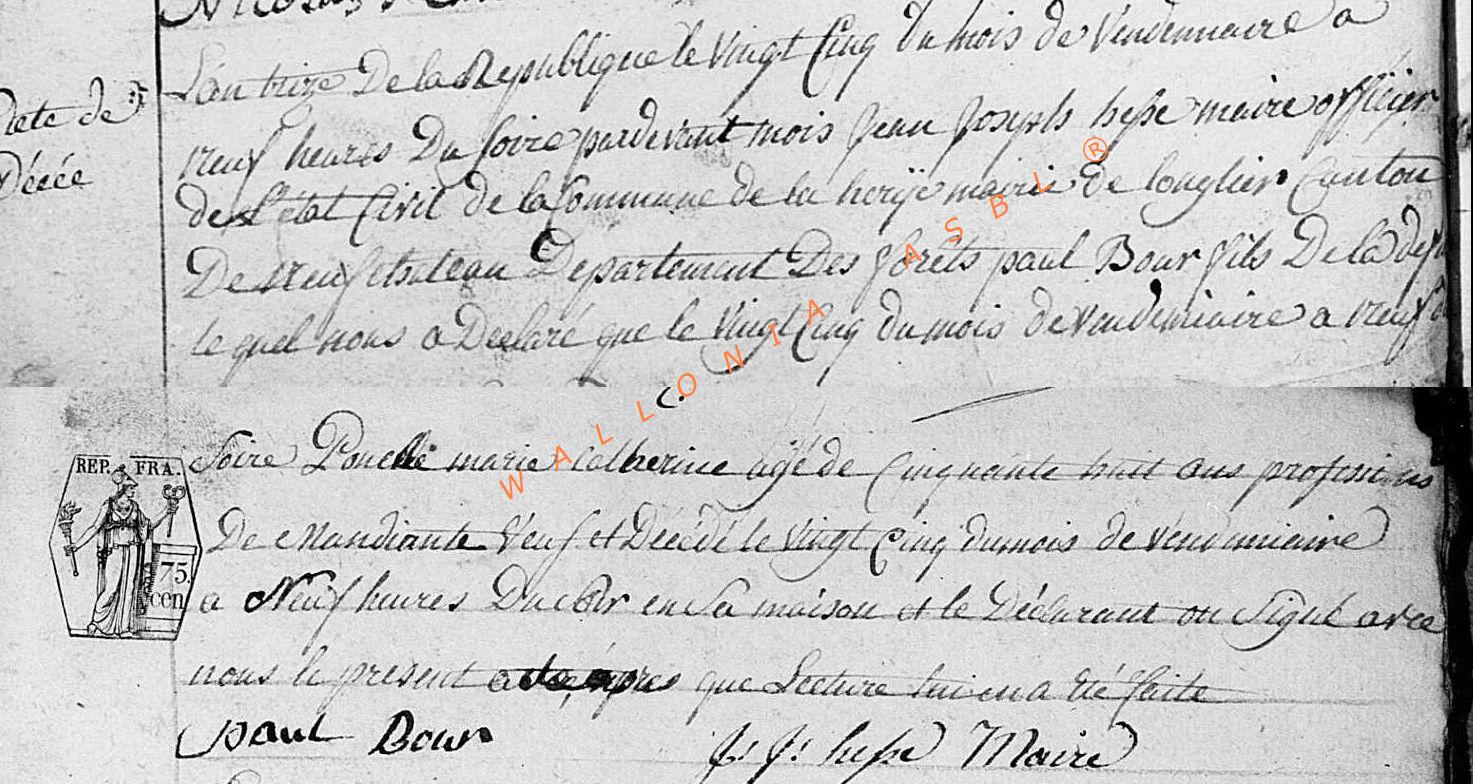 L'an treize De la Republique le vingt Cinq du mois de vendemiaire a
neuf heures Du soire pardevant mois jean joseph hesse maire offiicier
de l'état Civil de la Commune de la horÿe mairie De longlier Canton
De neufchateau Departement Des forêts paul Bour fils De la
le quel nous a Declaré que le vingt Cinq du mois de vendemiaire a neuf
Acte de
Décée
soire Poncelle marie Catherine agé de Cinquante huit ans profession
De Mandiante veuf et Décédé le vingt Cinq du mois de vendemiaire
a Neuf heures Du soir en sa maison et le Déclarant on Signé avec
nous le present acte après que Lecture lui en a été faite
paul Bour
J: J: hesse Maire
REP. FRA.
75
cen
WALLONIA ASBL ®